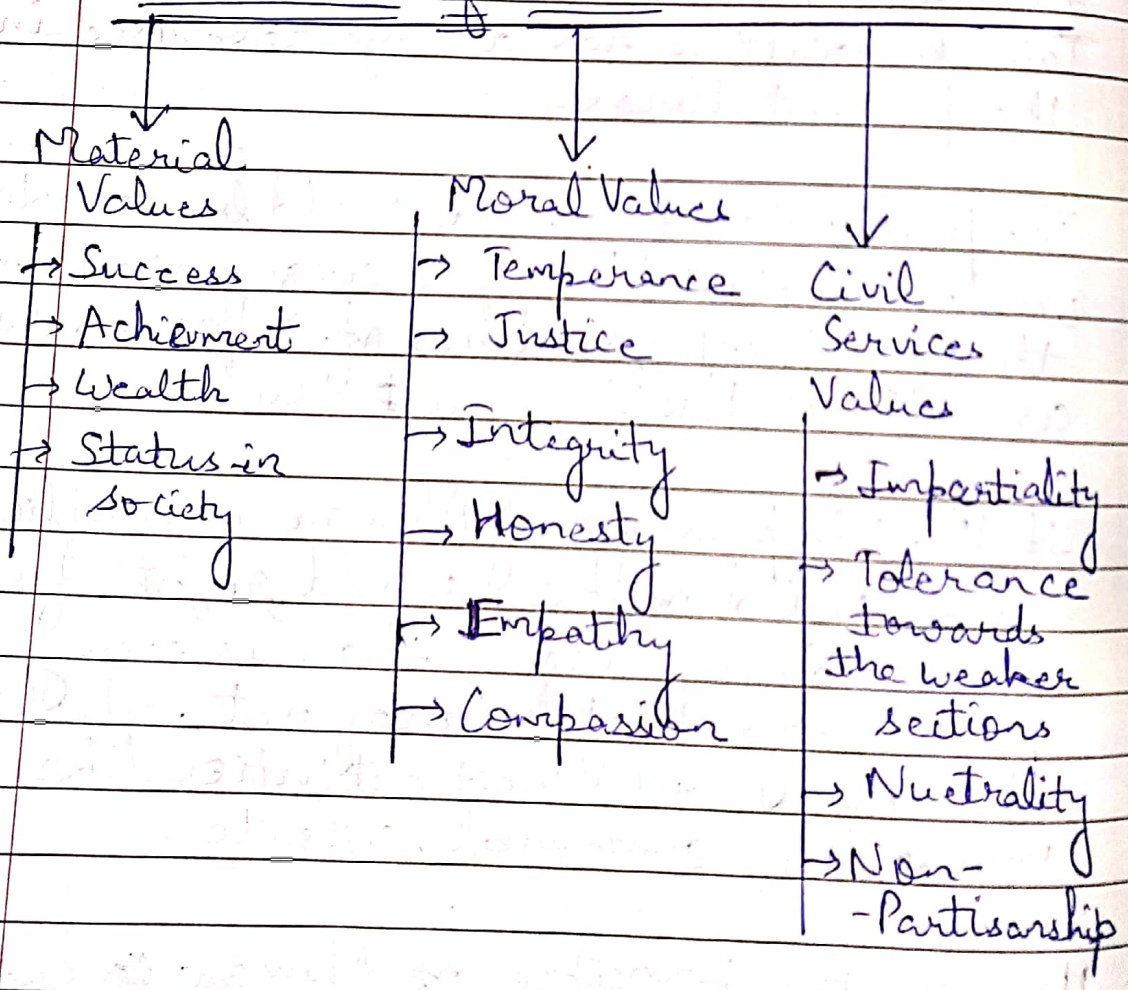 Material
Values
→ Success
→ Achievment
→ Wealth
→ Status in
society
Moral Values
→ Temperance
→ Justice
→ Integrity
→ Honesty
→ Empathy
→ Compassion
Civil
Services
Values
→ Impartiality
→ Tolerance
towards
the weaker
sections
→ Nuetrality
→ Non-
-Partisanship